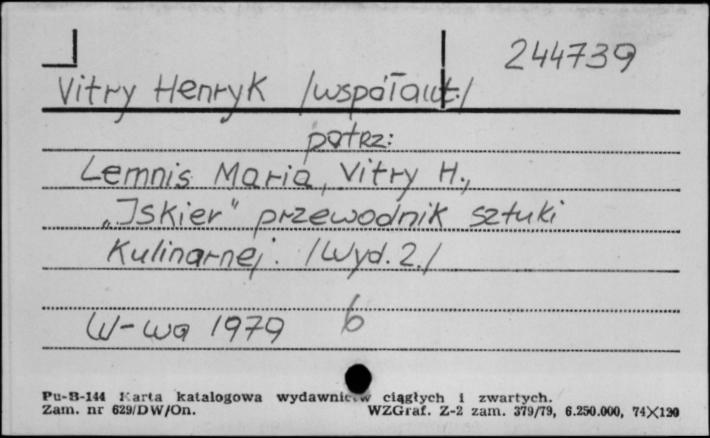 244739
Vitry Henryk /współaut./
patrz:
Lemnis Maria, Vitry H.,
„Iskier" przewodnik sztuki
kulinarnej. /Wyd. 2./
W-wa 1979 6
Pu-B-144 Karta katalogowa wydawnictw ciągłych i zwartych.
Zam. nr 629/DW/On. WZGraf. Z-2 zam. 379/79, 6.250.000, 74×120